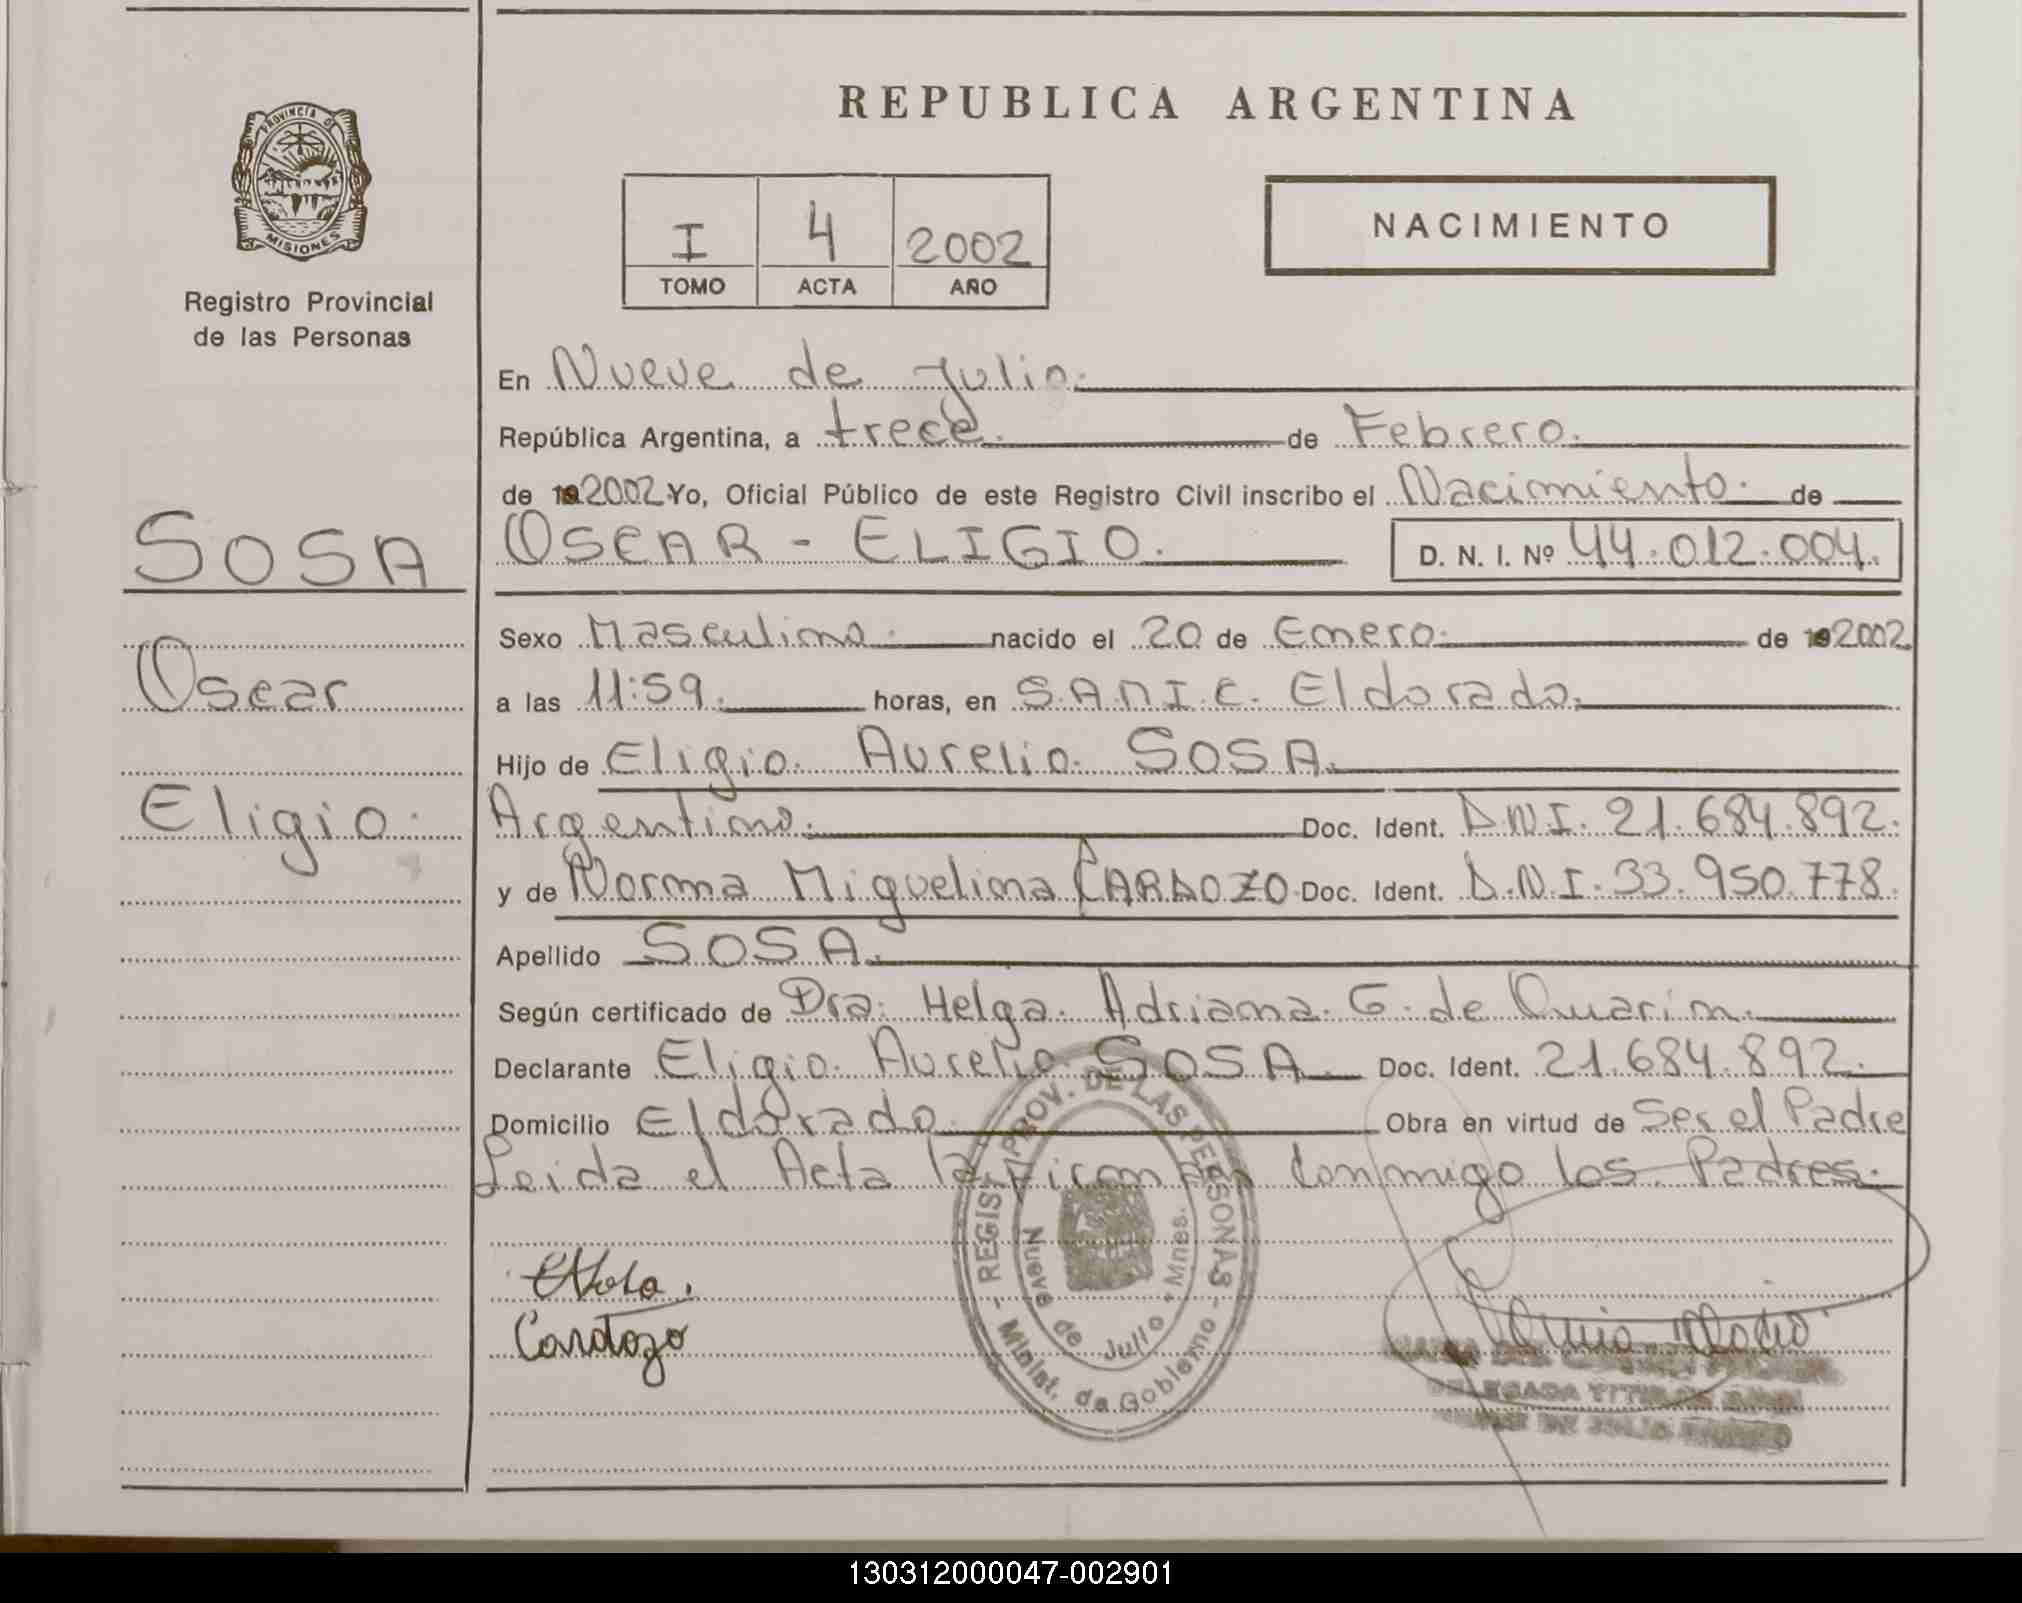 REPUBLICA ARGENTINA
PROVINCIA DE
MISIONES
Registro Provincial
de las Personas
I 4 2002
TOMO ACTA AÑO
NACIMIENTO
En Nueve de Julio.
República Argentina, a trece. de Febrero.
de 2002 Yo, Oficial Público de este Registro Civil inscribo el Nacimiento. de
SOSA
OSCAR - ELIGIO. D. N. I. Nº 44.012.004.
Sexo Masculino. nacido el 20 de Enero. de 2002
Oscar
a las 11:59. horas, en S.A.M.I.C. Eldorado.
Hijo de Eligio Aurelio SOSA.
Eligio.
Argentino. Doc. Ident. D.N.I. 21.684.892.
y de Norma Miguelina CARDOZO. Doc. Ident. D.N.I. 33.950.778.
Apellido SOSA.
Según certificado de Dra. Helga Adriana G. de
Declarante Eligio Aurelio SOSA. Doc. Ident. 21.684.892.
Domicilio Eldorado. Obra en virtud de Ser el Padre
Leida el Acta la firman conmigo los Padres.
REGIST. PROV. DE LAS PERSONAS - Minist. de Gobierno -
Nueve de Julio - Mnes.
Cardozo
DELEGADA
DE JULIO
130312000047-002901